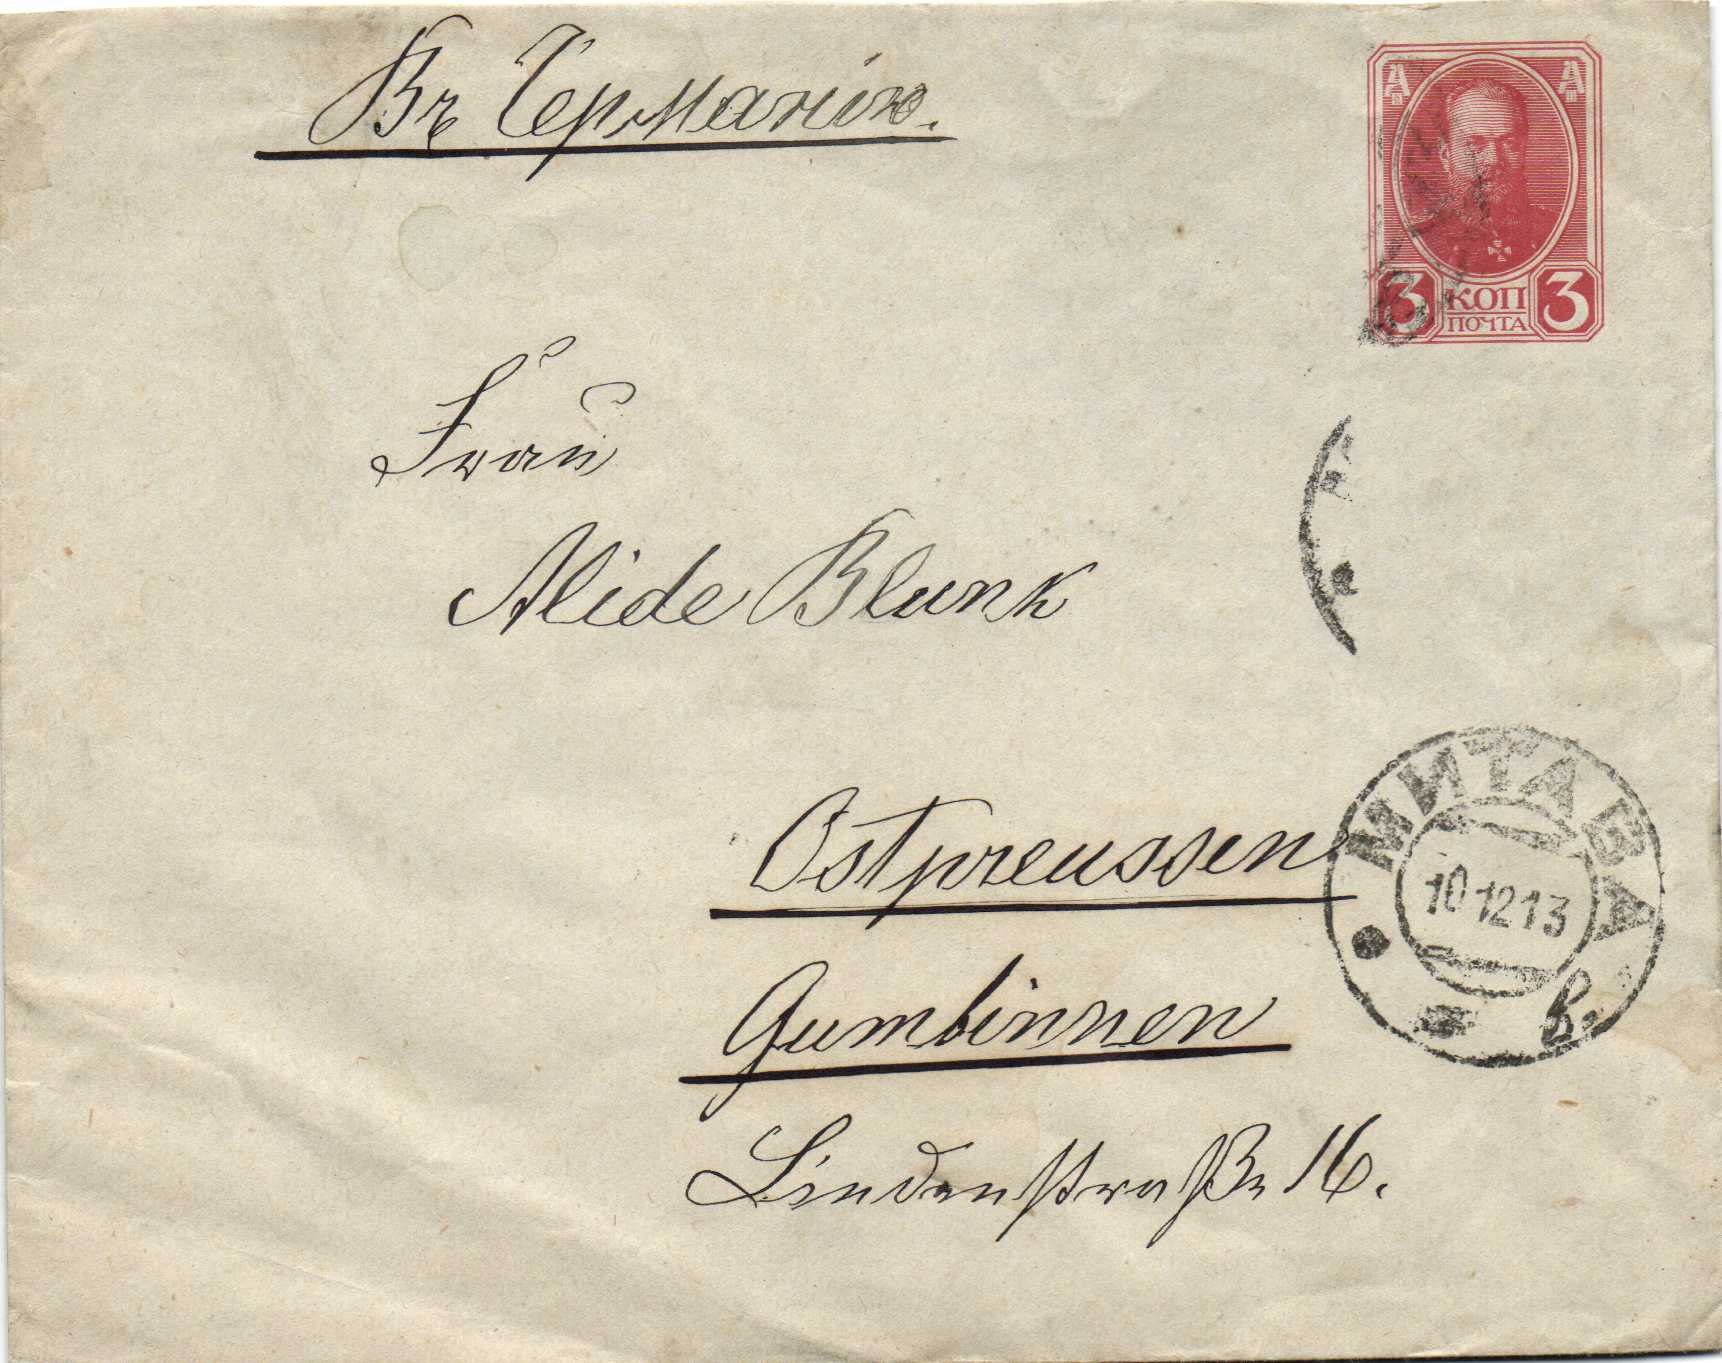 Въ Германію.
А А
3 КОП 3
ПОЧТА
Frau
Alide Blunk
Ostpreussen
МИТАВА
10 12 13
в.
Gumbinnen
Lindenstraße 16.